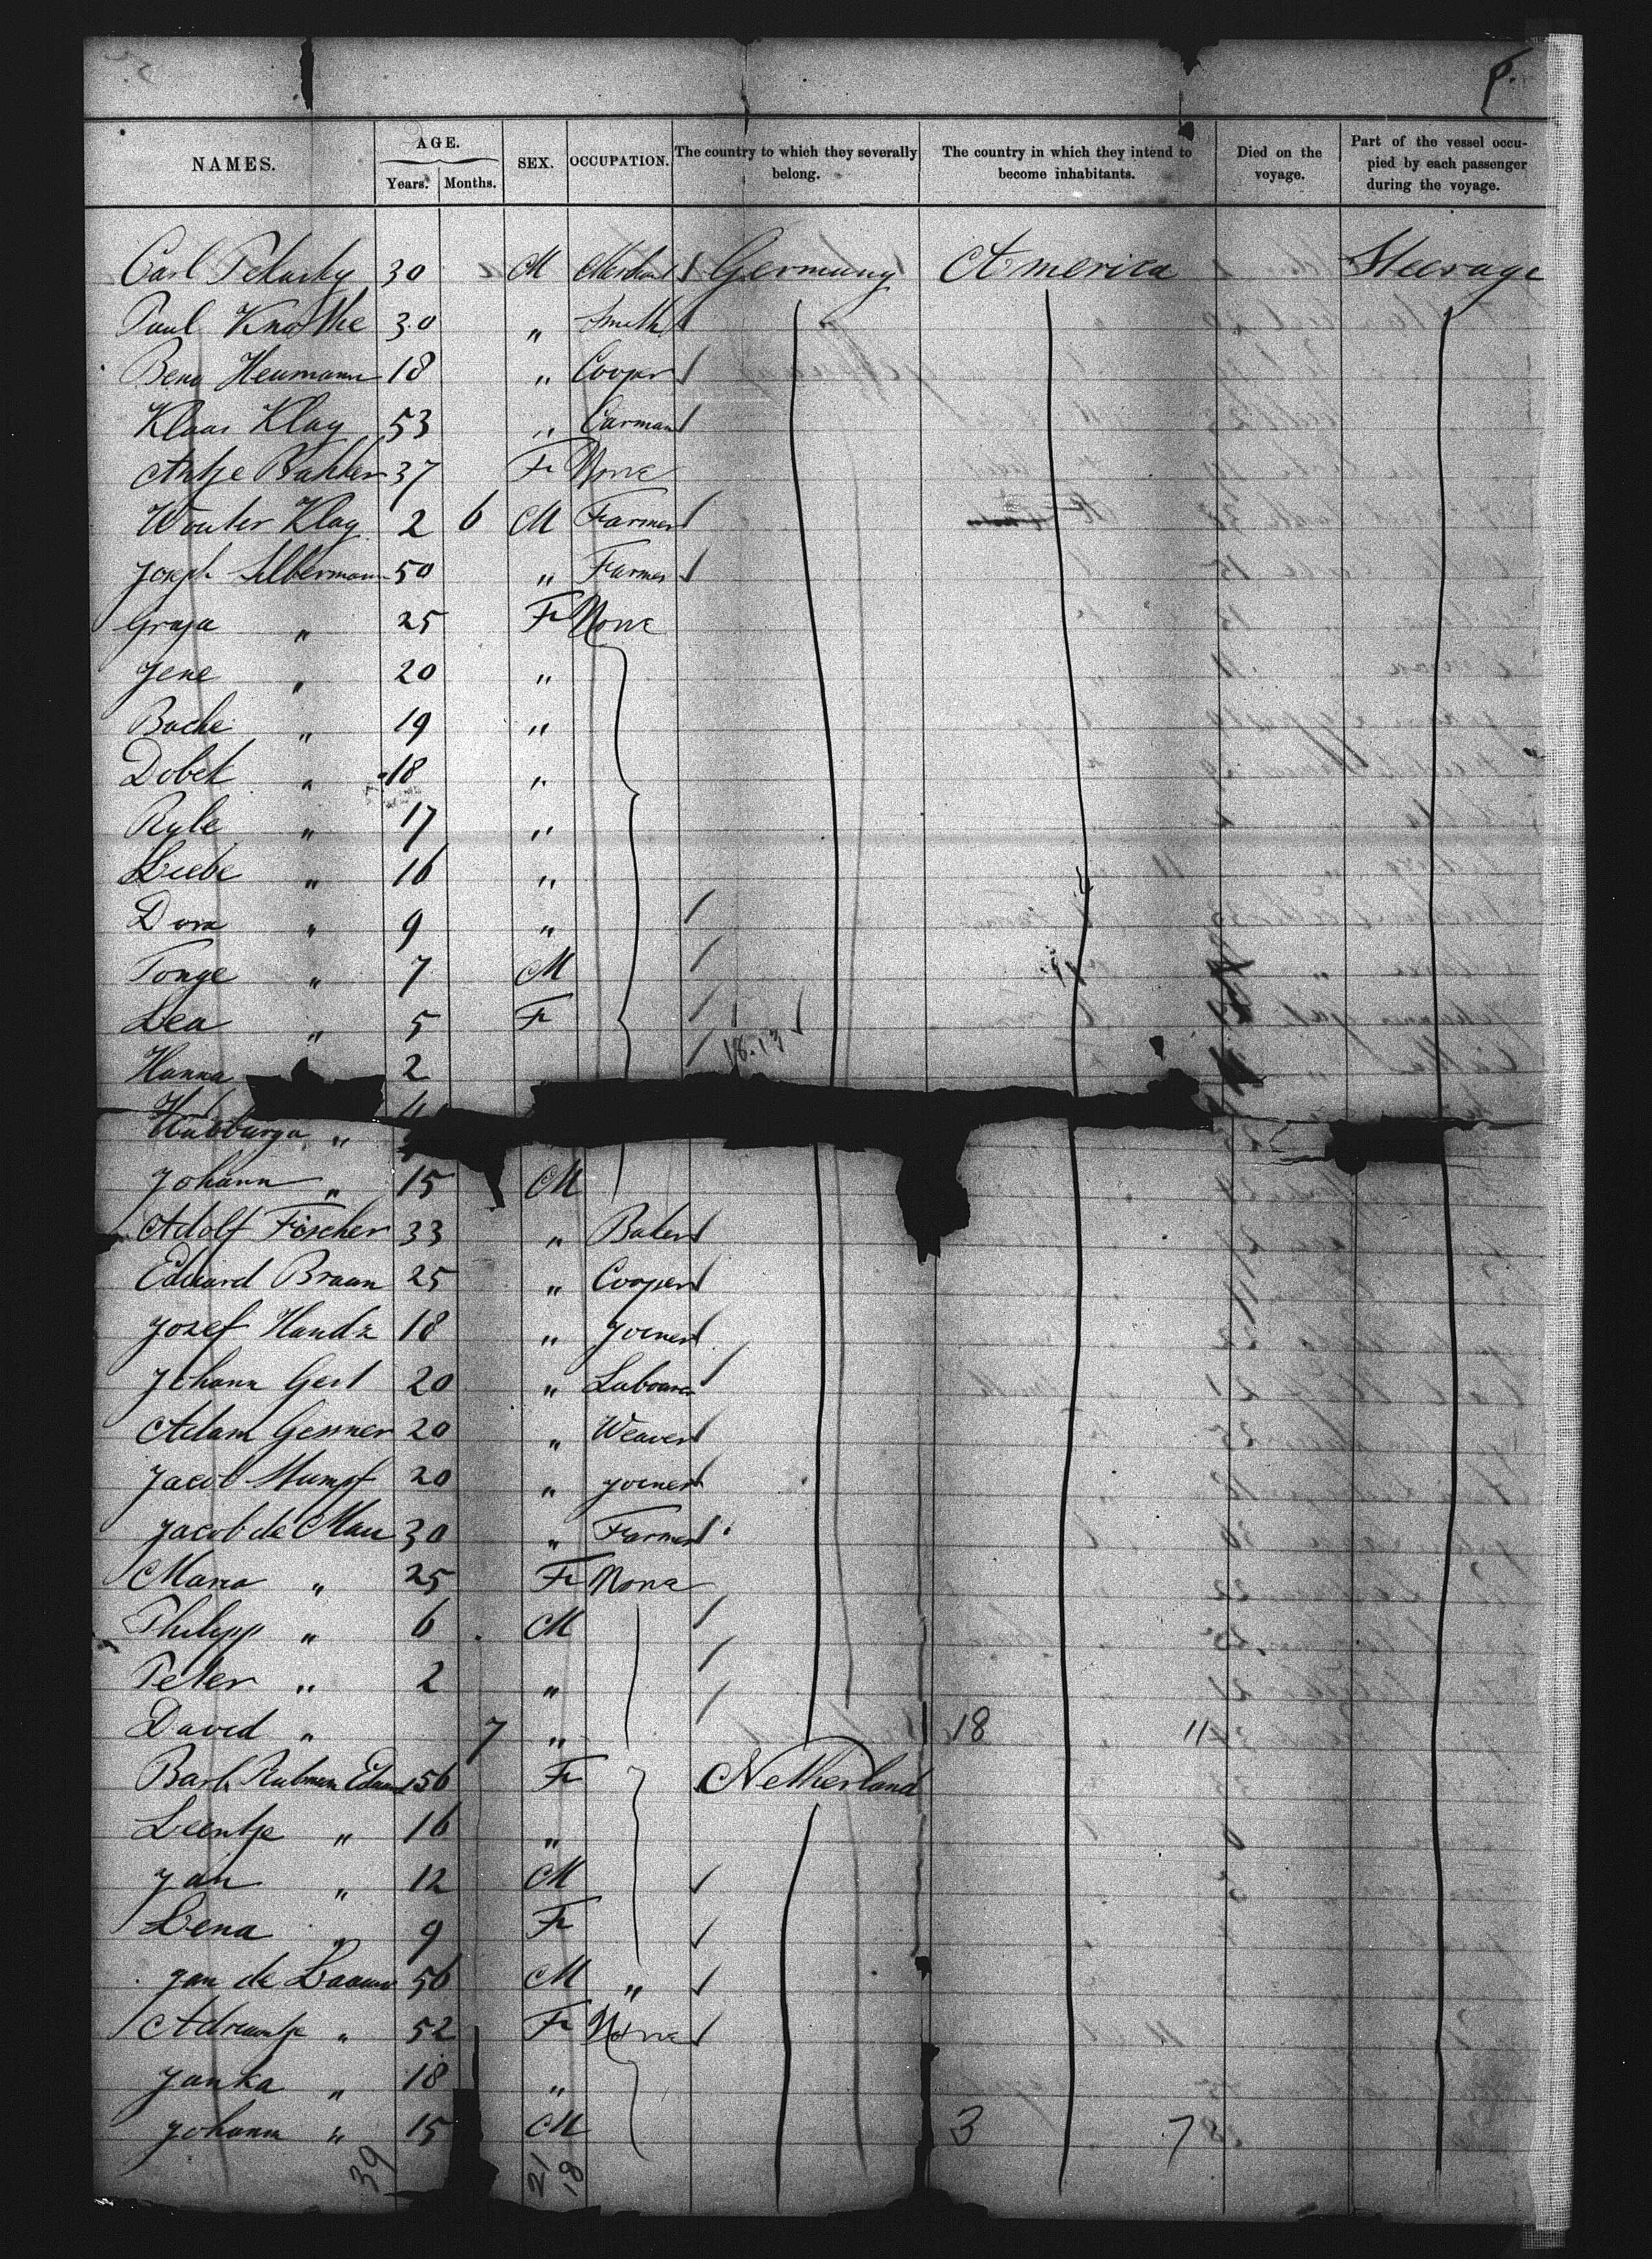 NAMES. AGE. Years. Months. SEX. OCCUPATION. The country to which they severally belong. The country in which they intend to become inhabitants. Died on the voyage. Part of the vessel occupied by each passenger during the voyage.
Carl 30 M Merchant Germany America Steerage
Paul Knothe 30 " Smith
Beno Heumann 18 " Cooper
Klaas Klay 53 " Carman
Antje Bakker 37 F None
Wouter Klay 2 6 M Farmer
Joseph Silbermann 50 " Farmer
Graja " 25 F None
Jene " 20 "
Bache " 19 "
Dobek " 18 "
Ryle " 17 "
Liebe " 16 "
Dora " 9 "
Tonge " 7 M
Lea " 5 F
18.13
Hanna 2
"
Johann " 15 M
Adolf Fischer 33 " Baker
Eduard Braun 25 " Cooper
Josef Handz 18 " Joiner
Johann Gerl 20 " Labourer
Adam Gessner 20 " Weaver
Jacob Stumpf 20 " Joiner
Jacob de 30 " Farmer
Maria " 25 F None
Philipp " 6 M
Peter " 2 "
David " 7 " 18 11
Barb. 56 F Netherland
Leentje " 16 "
Jan " 12 M
Lena " 9 F
Jan de 56 M "
Adriantje " 52 F None
Janka " 18 "
Johann " 15 M 3 7
39 21 18